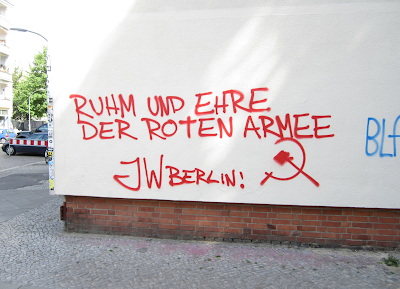 RUHM UND EHRE
DER ROTEN ARMEE
JW BERLIN!